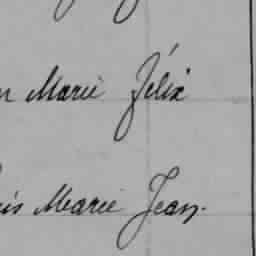 Marie Félix
Marie Jean